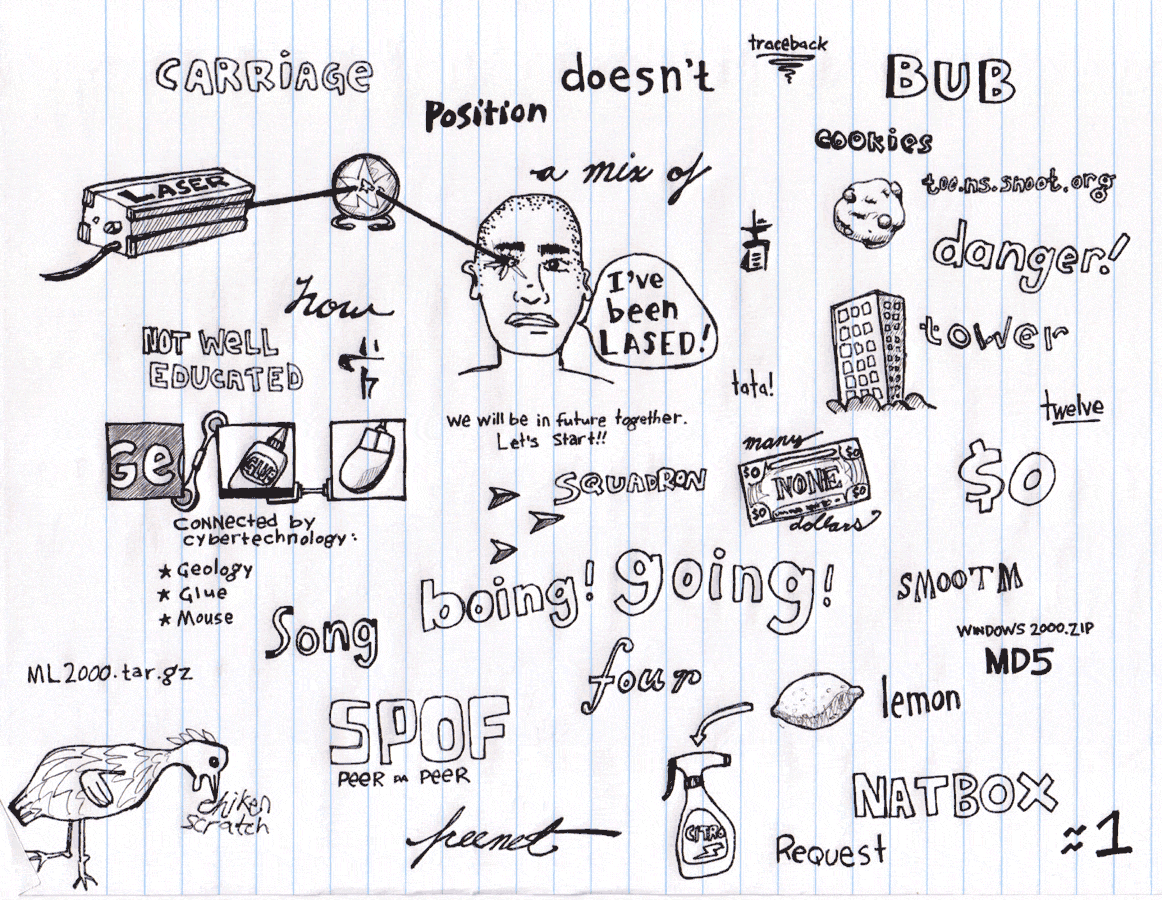 CARRIAGE
doesn't
traceback
BUB
Position
cookies
LASER
a mix of
too.ns.snoot.org
danger!
I've
been
LASED!
how
NOT WELL
EDUCATED
tower
tata!
twelve
We will be in future together.
Let's Start!!
Ge
GLUE
SQUADRON
many
$0
$0
NONE
$0
$0
dollars
$0
Connected by
cybertechnology:
★ Geology
★ Glue
★ Mouse
boing! going!
SMOOTM
Song
WINDOWS 2000.ZIP
MD5
ML2000.tar.gz
four
lemon
SPOF
PEER PEER
chiken
scratch
freenet
CITRO
NATBOX
Request
≈1